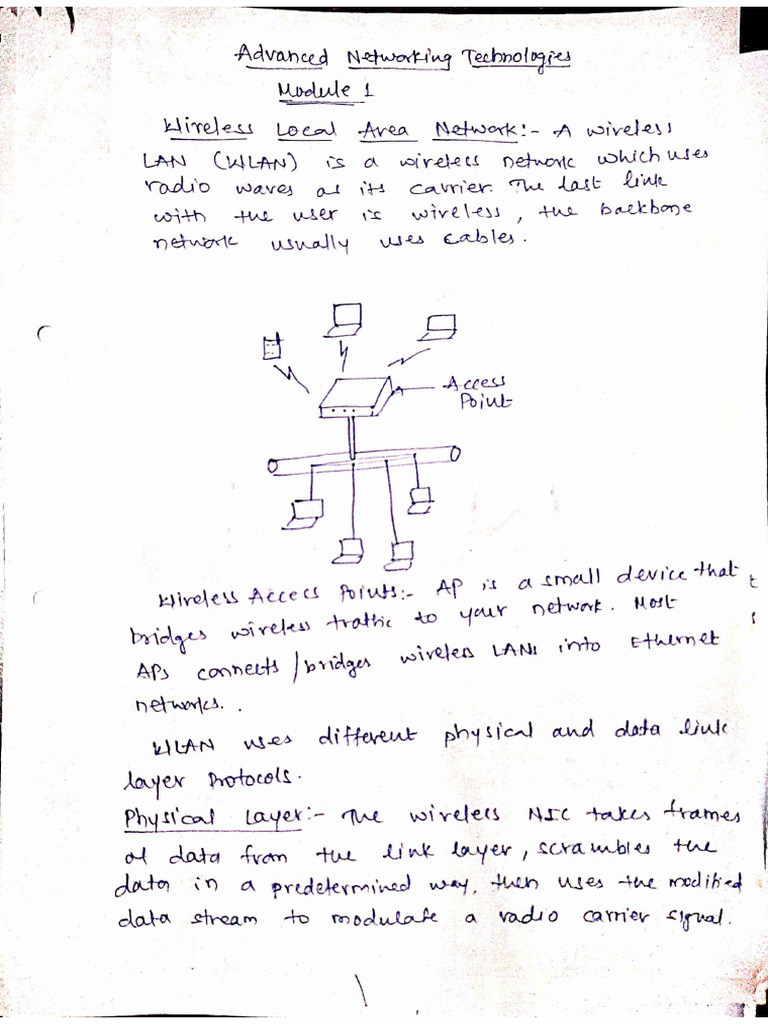 Advanced Networking Technologies
Module 1
Wireless Local Area Network:- A wireless
LAN (WLAN) is a wireless network which uses
radio waves as its carrier. The last link
with the user is wireless, the backbone
network usually uses cables.
Access
Point
Wireless Access Points:- AP is a small device that
bridges wireless traffic to your network. Most
APs connects/bridges wireless LANs into Ethernet
networks..
WLAN uses different physical and data link
layer Protocols.
Physical Layer:- The wireless NIC takes frames
of data from the link layer, scrambles the
data in a predetermined way, then uses the modified
data stream to modulate a radio carrier signal.